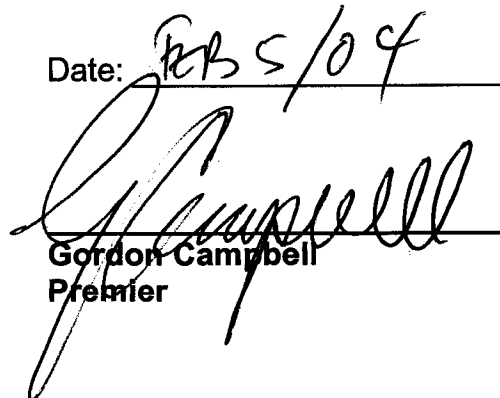 Date: FEB 5/04
G Campbell
Gordon Campbell
Premier